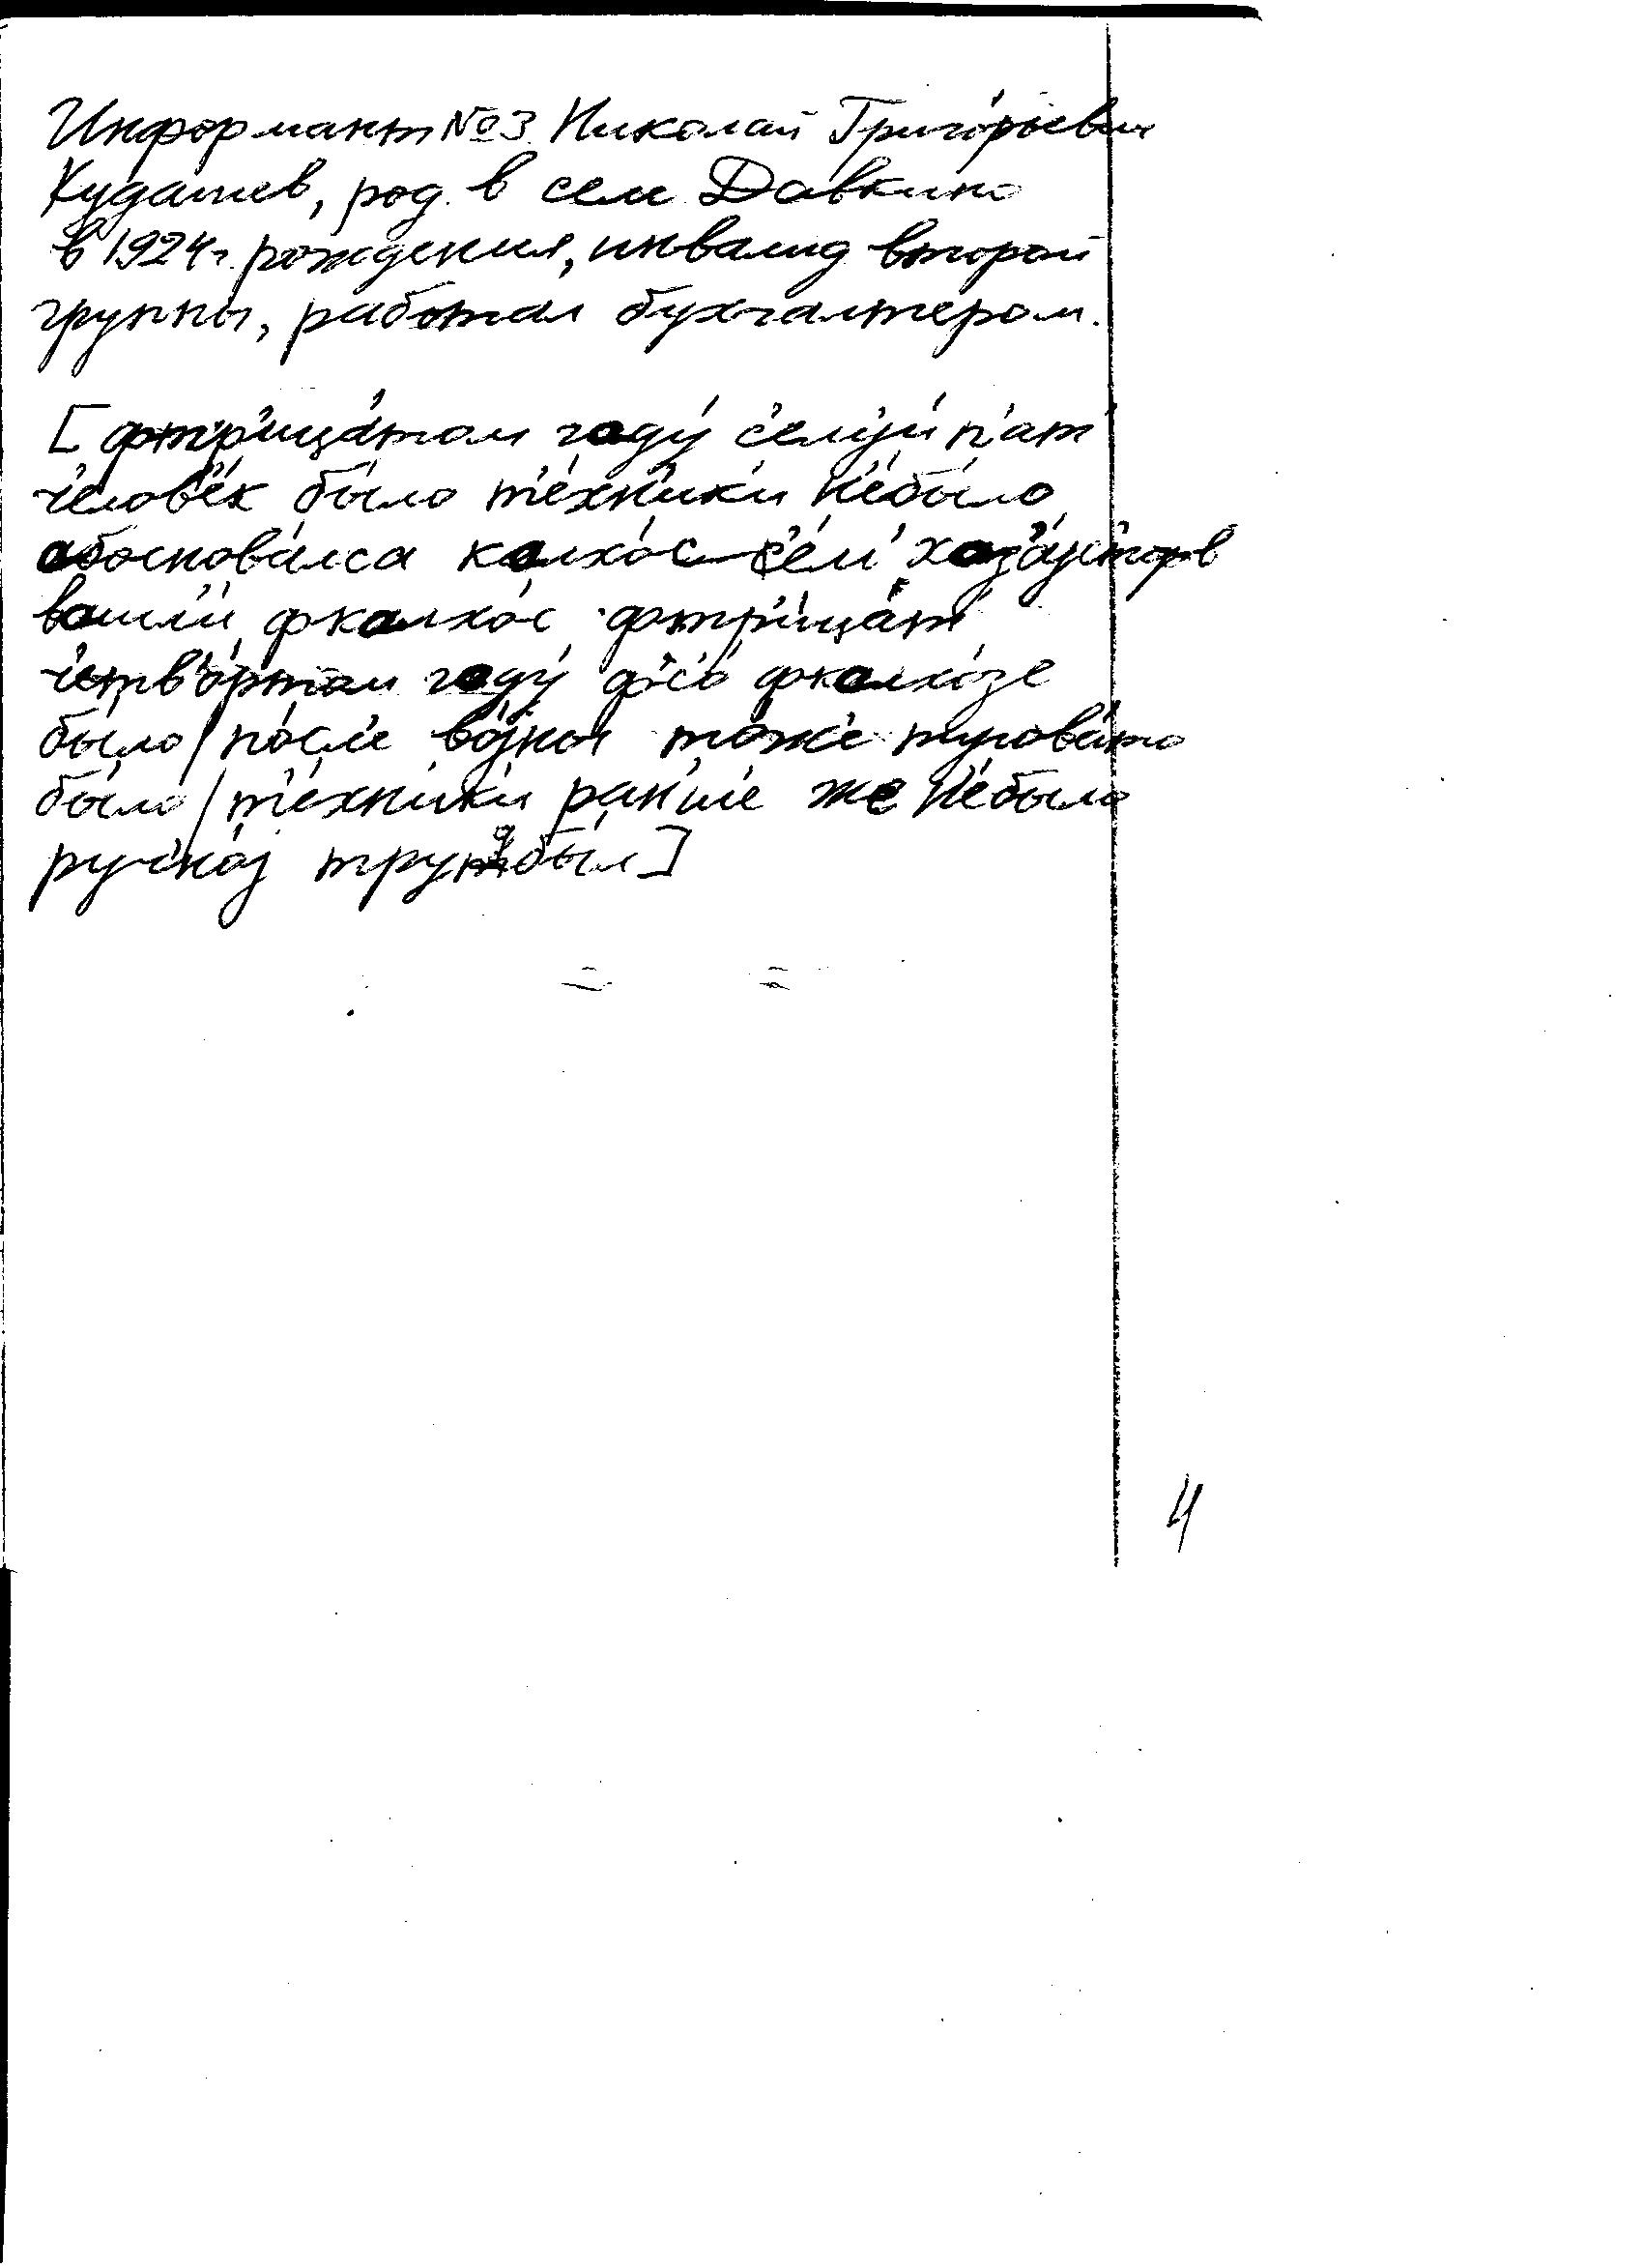 Информант №3 Николай Григорьевич
Кудашев, род. в селе Давкино
в 1924г. рождения, инвалид второй
группы, работал бухгалтером.
[фтр'ица́том году́ с'ем'йи́ п'ат'
ч'елов'е́к бы́ло т'е́хн'ик'и н'е́было
абоснова́лса калхо́с с'ем' хоз'а́йстоф
вашл'и́ фкалхо́с фтр'и́цат'
ч'етв'о́ртом году́ фс'о́ фкалхо́зе
бы́ло / по́сл'е војны́ то́же тугова́то
бы́ло / т'е́хн'ик'и ра́н'ше же н'е́было
ручно́ј труд был]
4